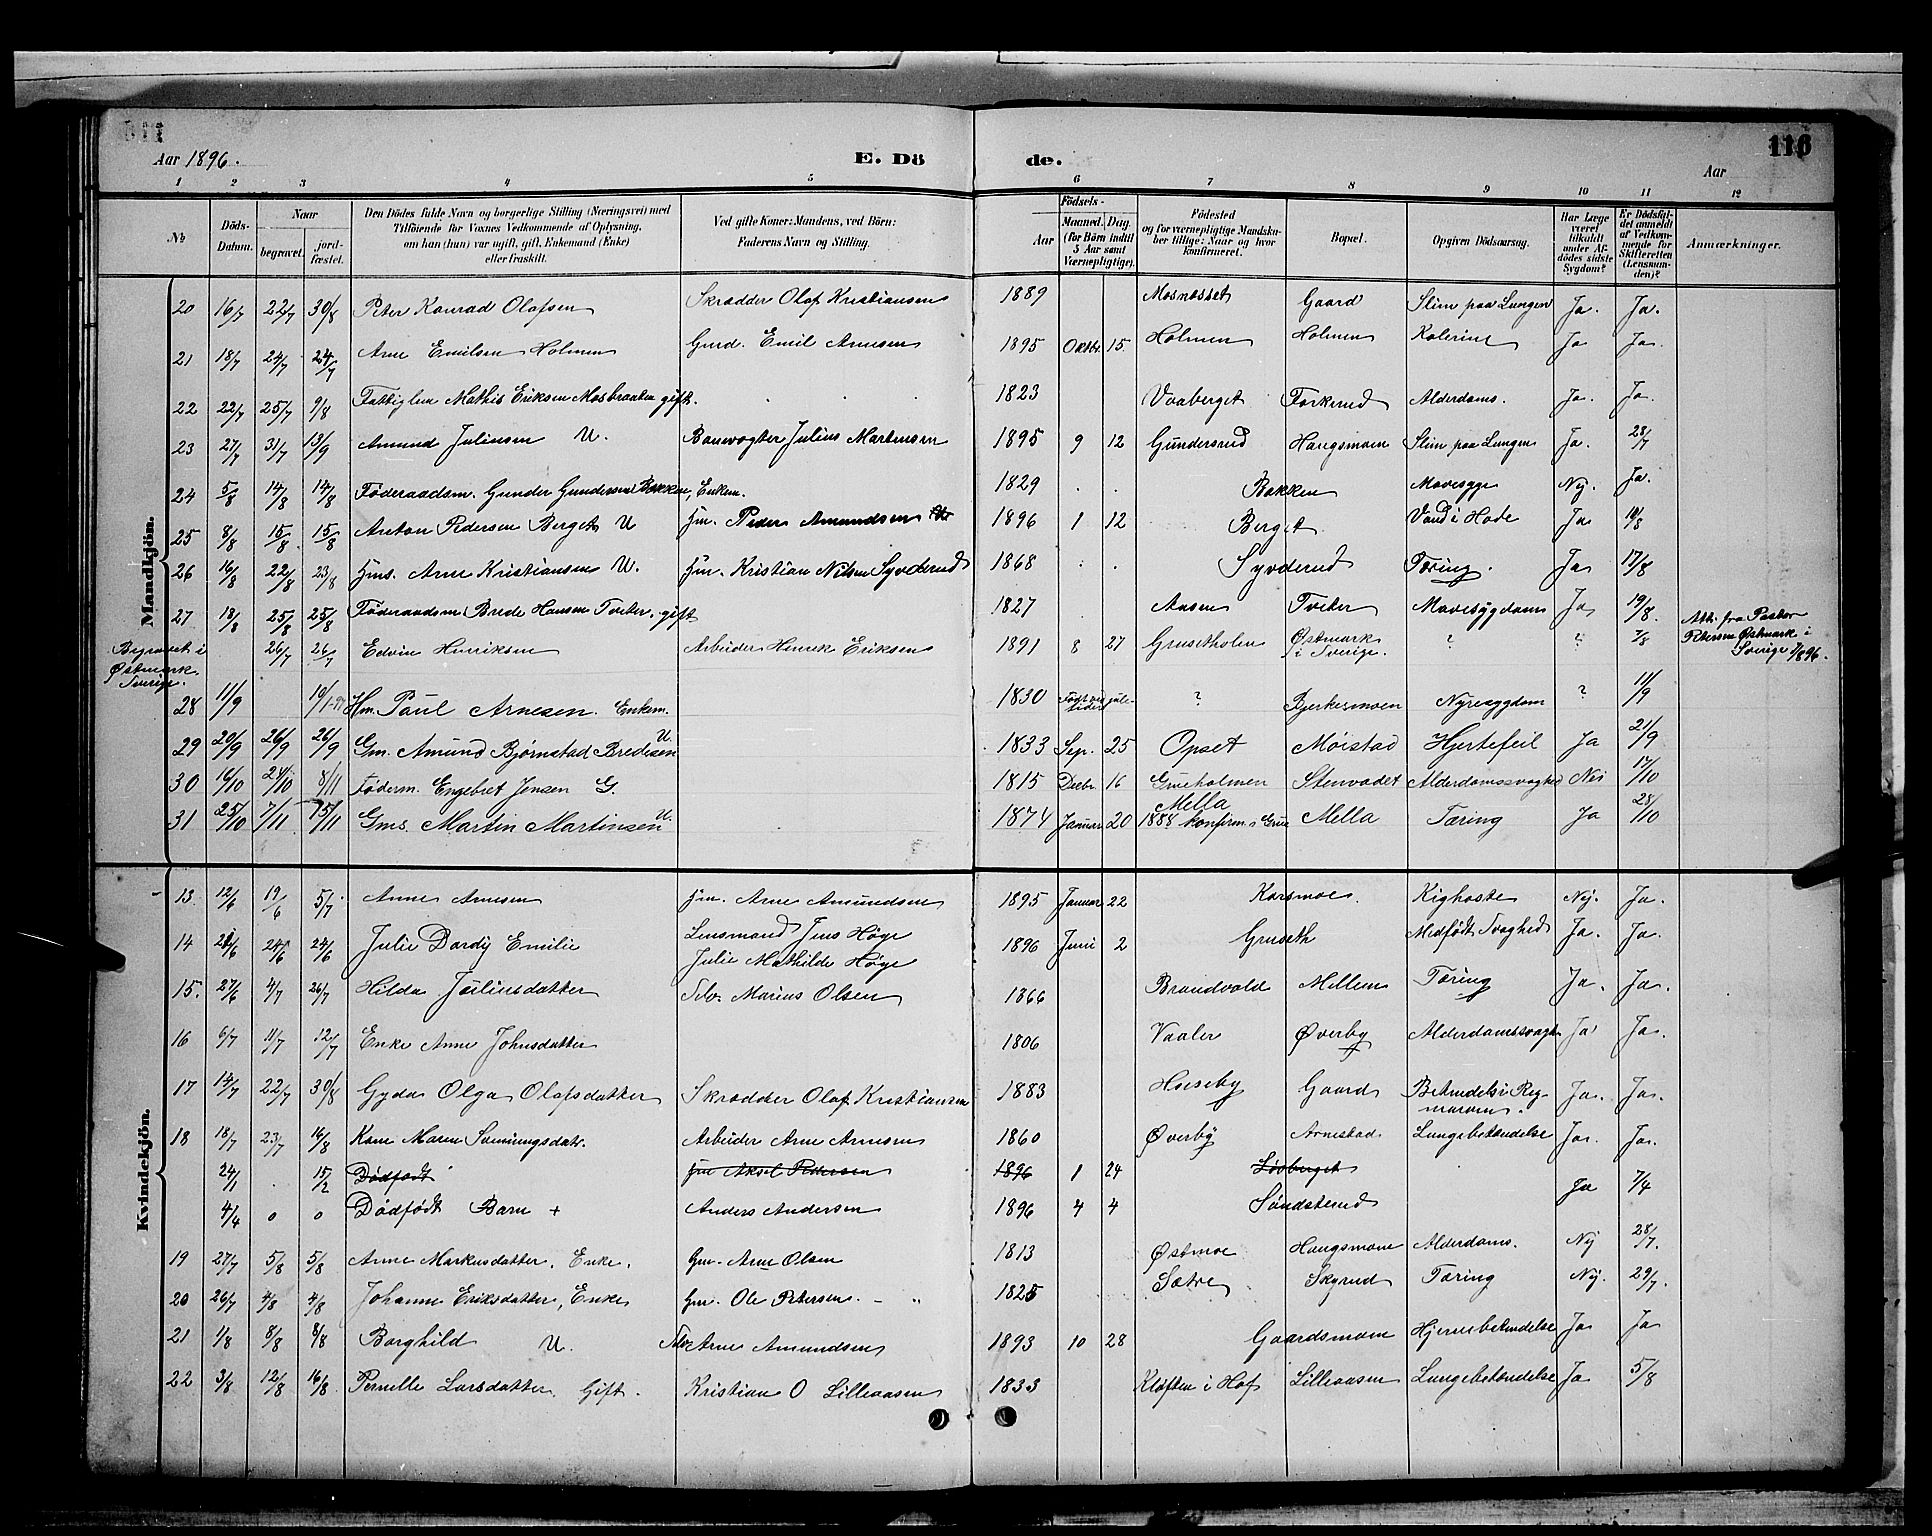 Aar 1896. E. Dö de. Aar 116
1 2 3 4 5 6 7 8 9 10 11 12
№ Döds-Datum. Naar begravet. jord-fæstet. Den Dödes fulde Navn og borgerlige Stilling (Næringsvei) med Tilföiende for Voxnes Vedkommende af Oplysning, om han (hun) var ugift, gift, Enkemand (Enke) eller fraskilt. Ved gifte Koner: Mandens, ved Börn: Faderens Navn og Stilling. Födsels- Aar Maaned. Dag. (for Börn indtil 5 Aar samt Værnepligtige). Födested og for værnepligtige Mandskaber tillige: Naar og hvor konfirmeret. Bopæl. Opgiven Dödsaarsag. Har Læge været tilkaldt under Afdödes sidste Sygdom? Er Dödsfaldet anmeldt af Vedkommende for Skifteretten (Lensmanden)? Anmærkninger.
Mandkjön.
20 16/7 22/7 30/8 Peter Konrad Olafsen Skrædder Olaf Kristiansen 1889 Mosnesset Gaard Slim paa Lungen Ja. Ja.
21 18/7 24/7 24/7 Arne Emilsen Holmen Gmd. Emil Arnesen 1895 Oktbr. 15. Holmen Holmen Kolerine Ja Ja.
22 22/7 25/7 9/8 Fattiglem Mathis Eriksen Mosbraaten gift. 1823 Vaaberget Forkerud Alderdoms. Ja. Ja.
23 27/7 31/7 13/9 Amund Juliusen U. Banevogter Julius Martinsen 1895 9 12 Gundersrud Haugsmoen Slim paa Lungen Ja. 28/7
24 5/8 14/8 14/8 Föderaadsm. Gunder Gundersen Bakken, Enkem. 1829 Bakken Mavesyge Nej. Ja.
25 8/8 15/8 15/8 Anton Pedersen Berget U Hm. Peder Amundsen 1896 1 12 Berget Vand i Hode Ja 10/8
26 16/8 22/8 23/8 Hms. Arne Kristiansen U. Hm. Kristian Nilsen Syvderud 1868 Syvderud Tæring. Ja 17/8
27 18/8 25/8 25/8 Föderaadsm. Brede Hansen Tveter. gift 1827 Aasen Tveter Mavesygdom Ja 19/8.
Begravet i Østmark Sverige. 26/7 26/7 Edvin Henriksen Arbeider Henrik Eriksen 1891 8 27 Grusetholm Østmark i Sverige. ? ? 7/8 Att. fra Pastor Petersen Østmark i Sverige 7/8 96.
28 11/9 19/1-97 Hm. Paul Arnesen. Enkem. 1830 Født ved juletider ? Bjerkesmoen Nyresygdom ? 11/9
29 20/9 26/9 26/9 Gm. Amund Bjørnstad Bredesen U. 1833 Sep. 25 Opset Møistad Hjertefeil Ja 21/9
30 16/10 24/10 8/11 Föderm. Engebret Jensen G. 1815 Decbr. 16 Grueholmen Stenvadet Alderdomssvaghed Nei 17/10
31 25/10 7/11 15/11 Gms. Martin Martinsen U. 1874 Januar 20 Mella 1888 konfirm. i Grue Mella Tæring Ja 28/10
Kvindekjön.
13. 12/6 19/6 5/7 Anne Arnesen Hm. Arne Amundsen 1895 Januar 22 Korsmoe. Kighoste Nej. Ja.
14 21/6 24/6 24/6 Julie Dordij Emilie Lensmand Jens Höye Julie Mathilde Höye 1896 Juni 2 Gruseth Medfödt Svaghed Ja. Ja.
15. 27/6 4/7 26/7 Hilda Juliusdatter Selv. Marius Olsen 1866 Brandvold Mellem Tæring Ja. Ja.
16 6/7 11/7 12/7 Enke Anne Johnsdatter 1806 Vaaler Øverby Alderdomssvagh Ja Ja.
17 14/7 22/7 30/8 Gyda Olga Olafsdatter Skrædder Olaf Kristiansen 1883 Huseby Gaard Betændelse i Rygmarven. Ja. Ja.
18 18/7 23/7 16/8 Kone Maren Svenungsdatr. Arbeider Arne Arnesen 1860 Øverby Arnestad Lungebetændelse Ja. Ja.
24/1 15/2 Dødfødt Hm Aksel Pedersen 1896 1 24 Løvberget
4/4 o o Dödfödt Barn + Anders Andersen 1896 4 4 Söndsterud Ja 7/4
19 27/7 5/8 5/8 Anne Markusdatter, Enke, Gm. Arne Olsen 1813 Østmoe Haugsmoen Alderdoms. Nej 28/7.
20 26/7 4/8 4/8 Johanne Eriksdatter, Enke Hm. Ole Petersen. 1825 Sætre Skyrud Tæring Nej. 29/7.
21 1/8 8/8 8/8 Borghild U. Selv. Arne Amundsen 1893 10 28 Gaardsmoen Hjernebetændelse Ja Ja
22 3/8 12/8 16/8 Pernille Larsdatter. Gift. Kristian O Lilleaasen 1833 Kløften i Hof Lilleaasen Lungebetændelse Ja 5/8